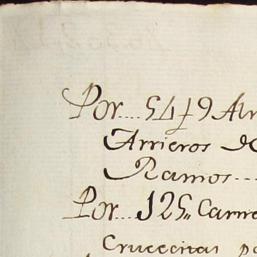 Por.... 5479 Arr
Arrieros de
Ramos...
Por.... 125,, Carre
Crucecitas p